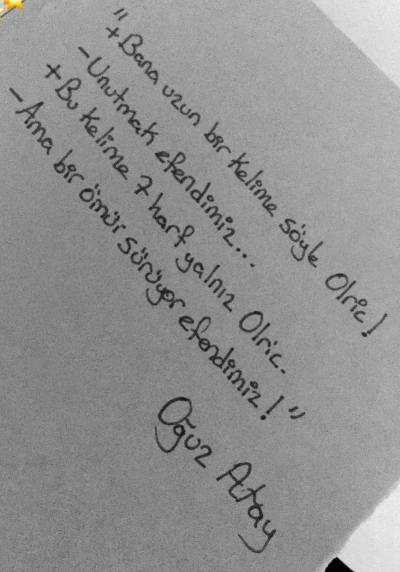 "
+Bana uzun bir kelime söyle Olric!
-Unutmak efendimiz...
+Bu kelime 7 harf yalnız Olric.
-Ama bir ömür sürüyor efendimiz!"
Oğuz Atay